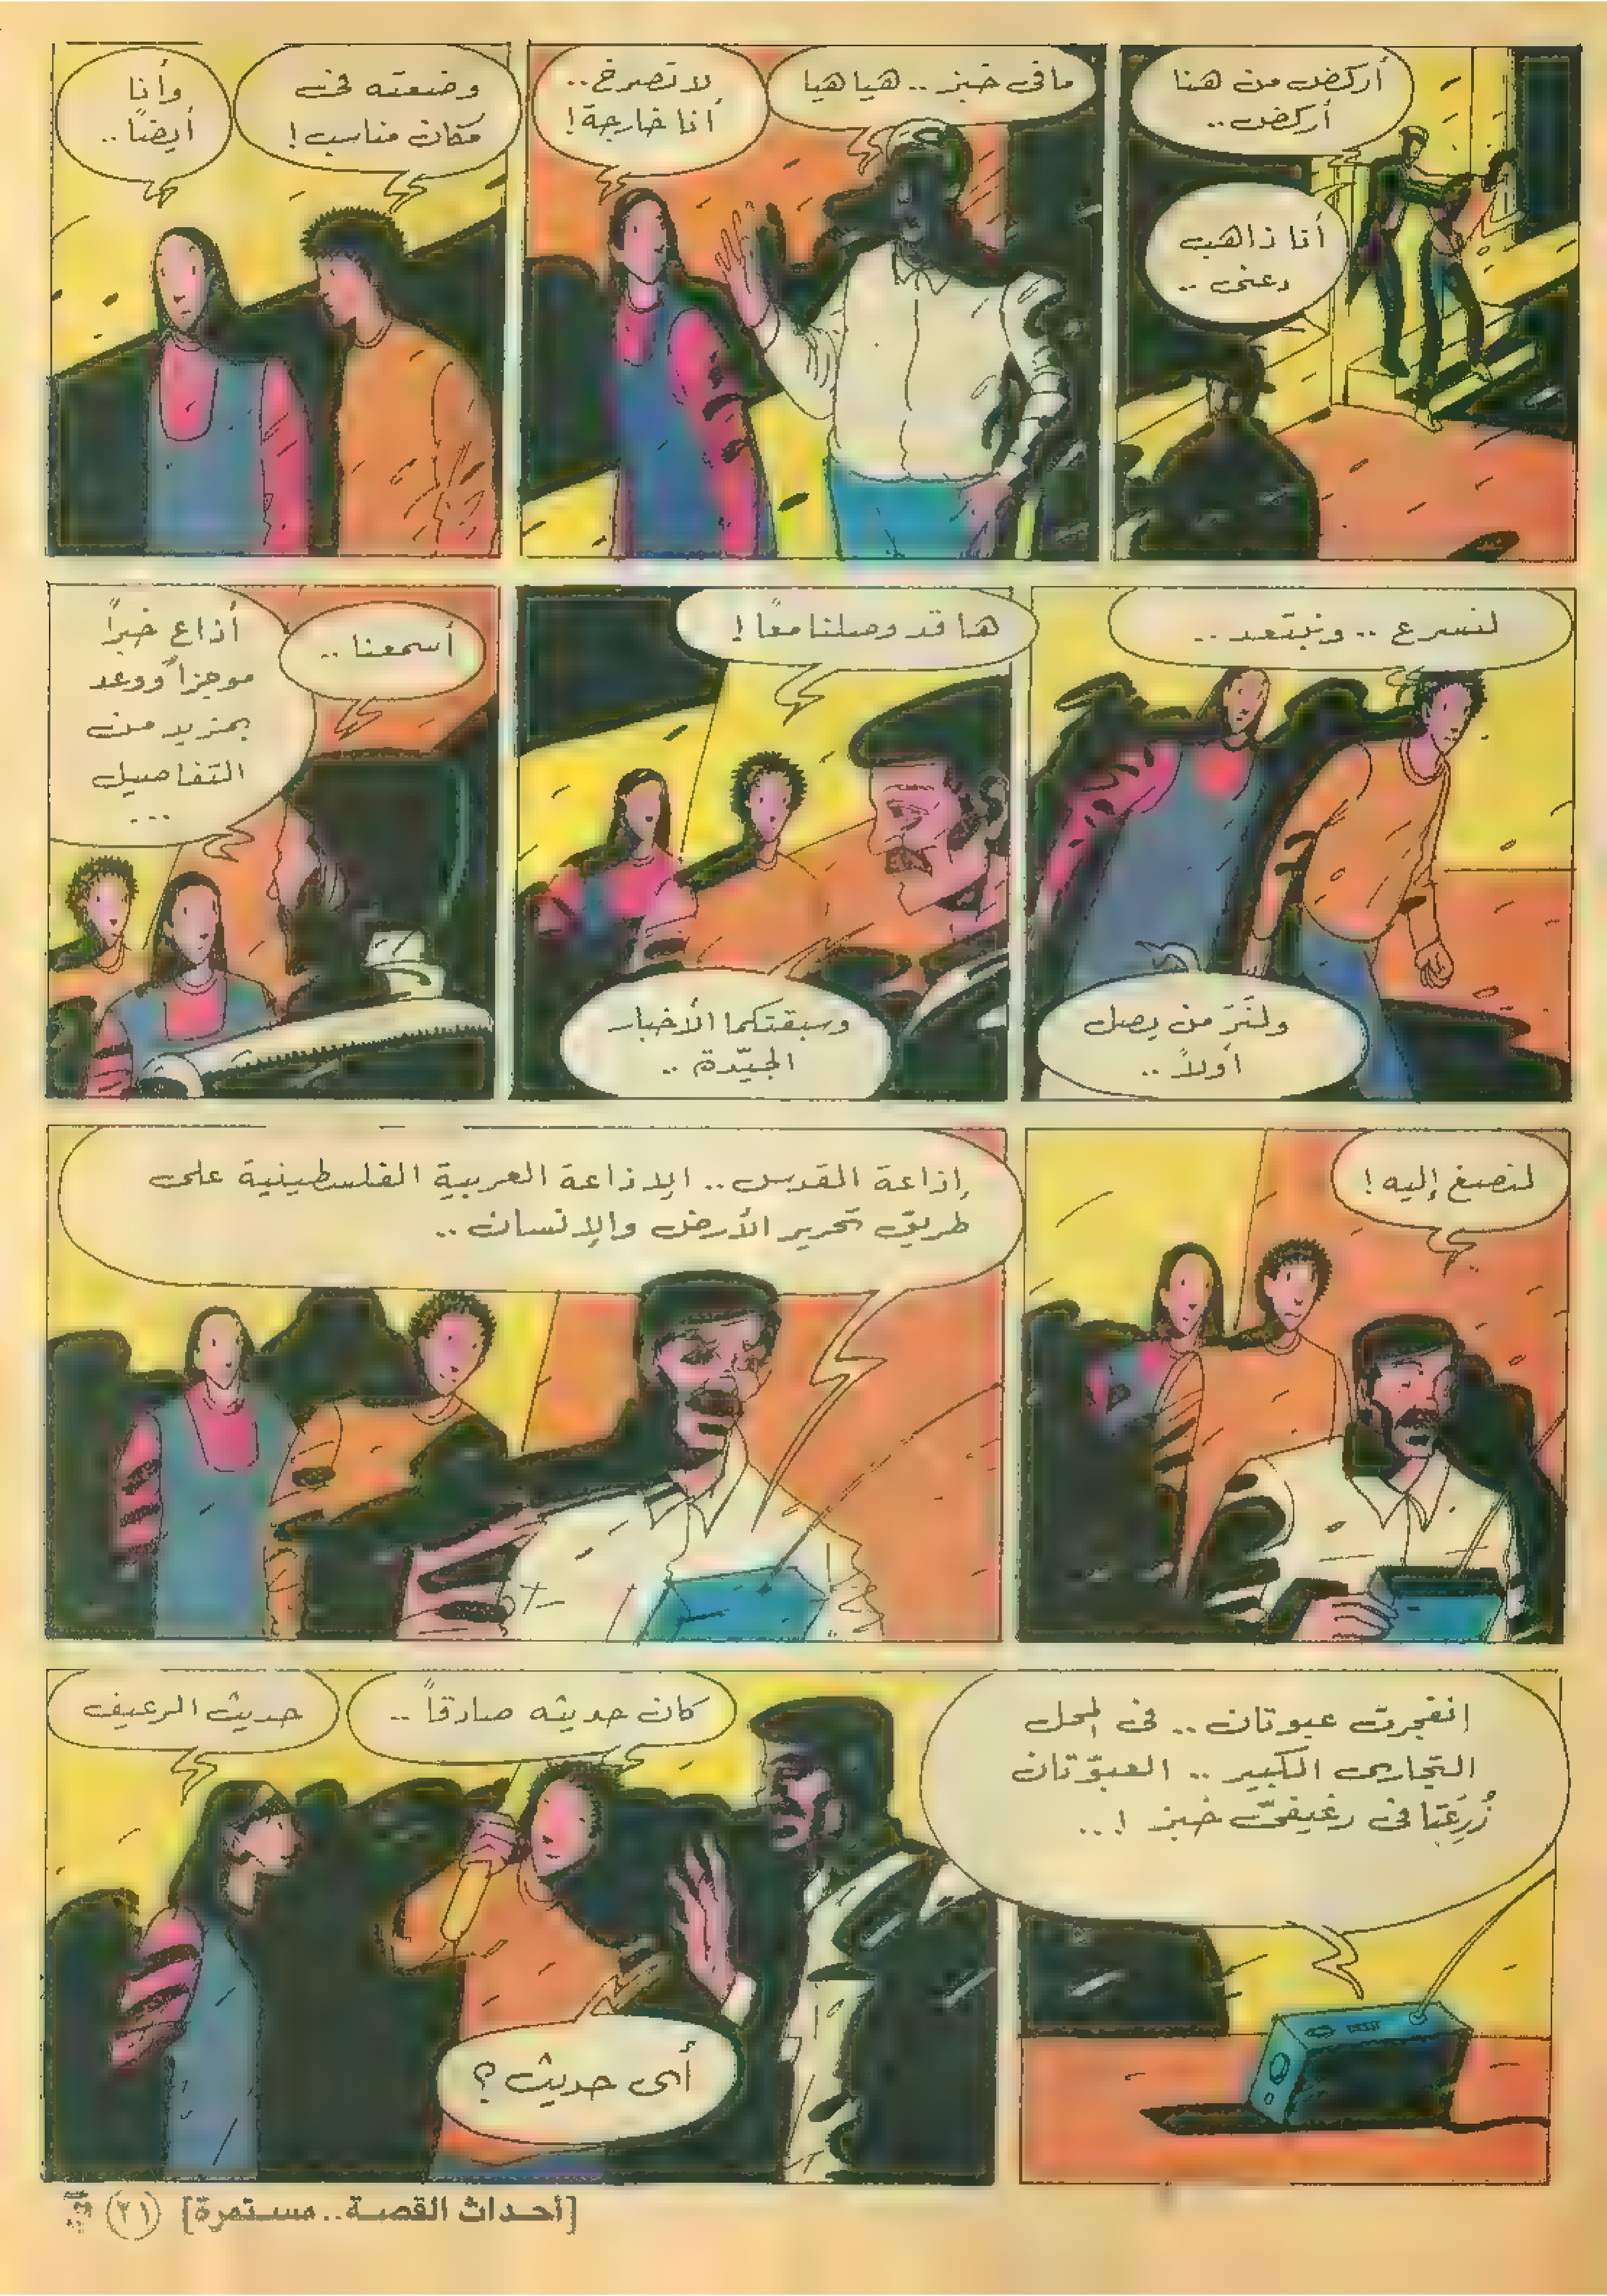 أركض من هنا
أركض..
أنا ذاهب
دعني ..
مافي خبز .. هيا هيا
لا تصرخ..
أنا خارجة!
وضعته في
مكان مناسب!
وأنا
أيضًا..
لنسرع .. ونبتعد ..
ولنَرَ من يصل
أولاً ..
ها قد وصلنا معًا!
وسبقتكما الأخبار
الجيّدة ..
أسمعنا ..
أذاع خبرًا
موجزاً ووعد
بمزيد من
التفاصيل
...
لنصغ إليه!
إذاعة القدس .. الإذاعة العربية الفلسطينية على
طريق تحرير الأرض والإنسان ..
انفجرت عبوتان .. في المحل
التجاري الكبير .. العبوّتان
زُرِعَتا في رغيفيّ خبز !..
كان حديثه صادقاً ..
حديث الرغيف
أي حديث؟
[أحداث القصة.. مستمرة] (٢١)